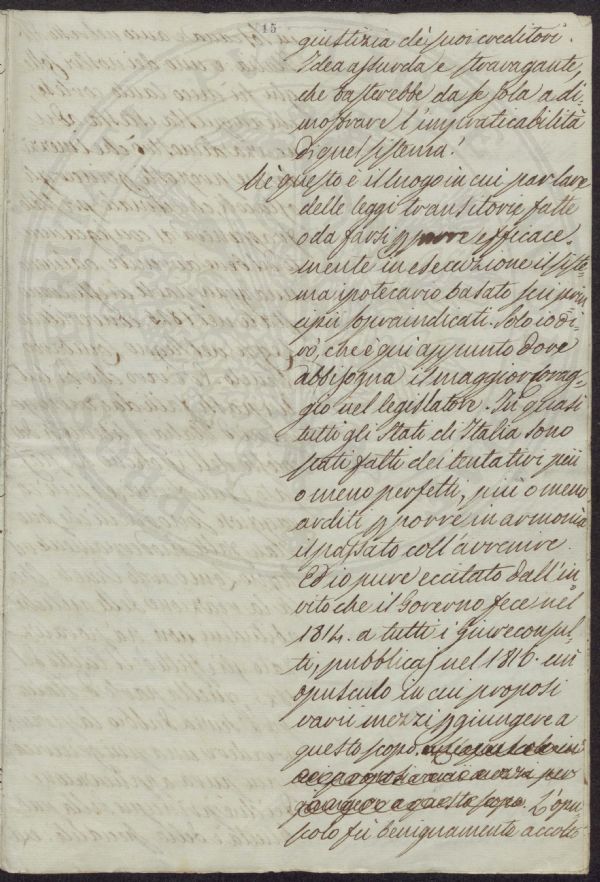 15
giustizia de' suoi creditori.
Idea assurda e stravagante,
che basterebbe da se sola a di-
mostrare l'impraticabilità
di quel sistema!
Nè questo è il luogo in cui parlare
delle leggi transitorie fatte
o da farsi p porre efficace-
mente in esecuzione il siste-
ma ipotecario basato sui prin
cipii sopraindicati. Solo io di-
rò, che è qui appunto dove
abbisogna il maggior corag-
gio nel legislatore. In quasi
tutti gli Stati di Italia sono
stati fatti dei tentativi più
o meno perfetti, più o meno
arditi p porre in armonia
il passato coll'avvenire.
Ed io pure eccitato dall'in-
vito che il Governo fece nel
1814. a tutti i giureconsul-
ti, pubblicai nel 1816. un
opusculo in cui proposi
varii mezzi p giungere a
questo scopo.
proposi varii mezzi per
giungere a questo scopo. L'opu-
scolo fù benignamente accolto